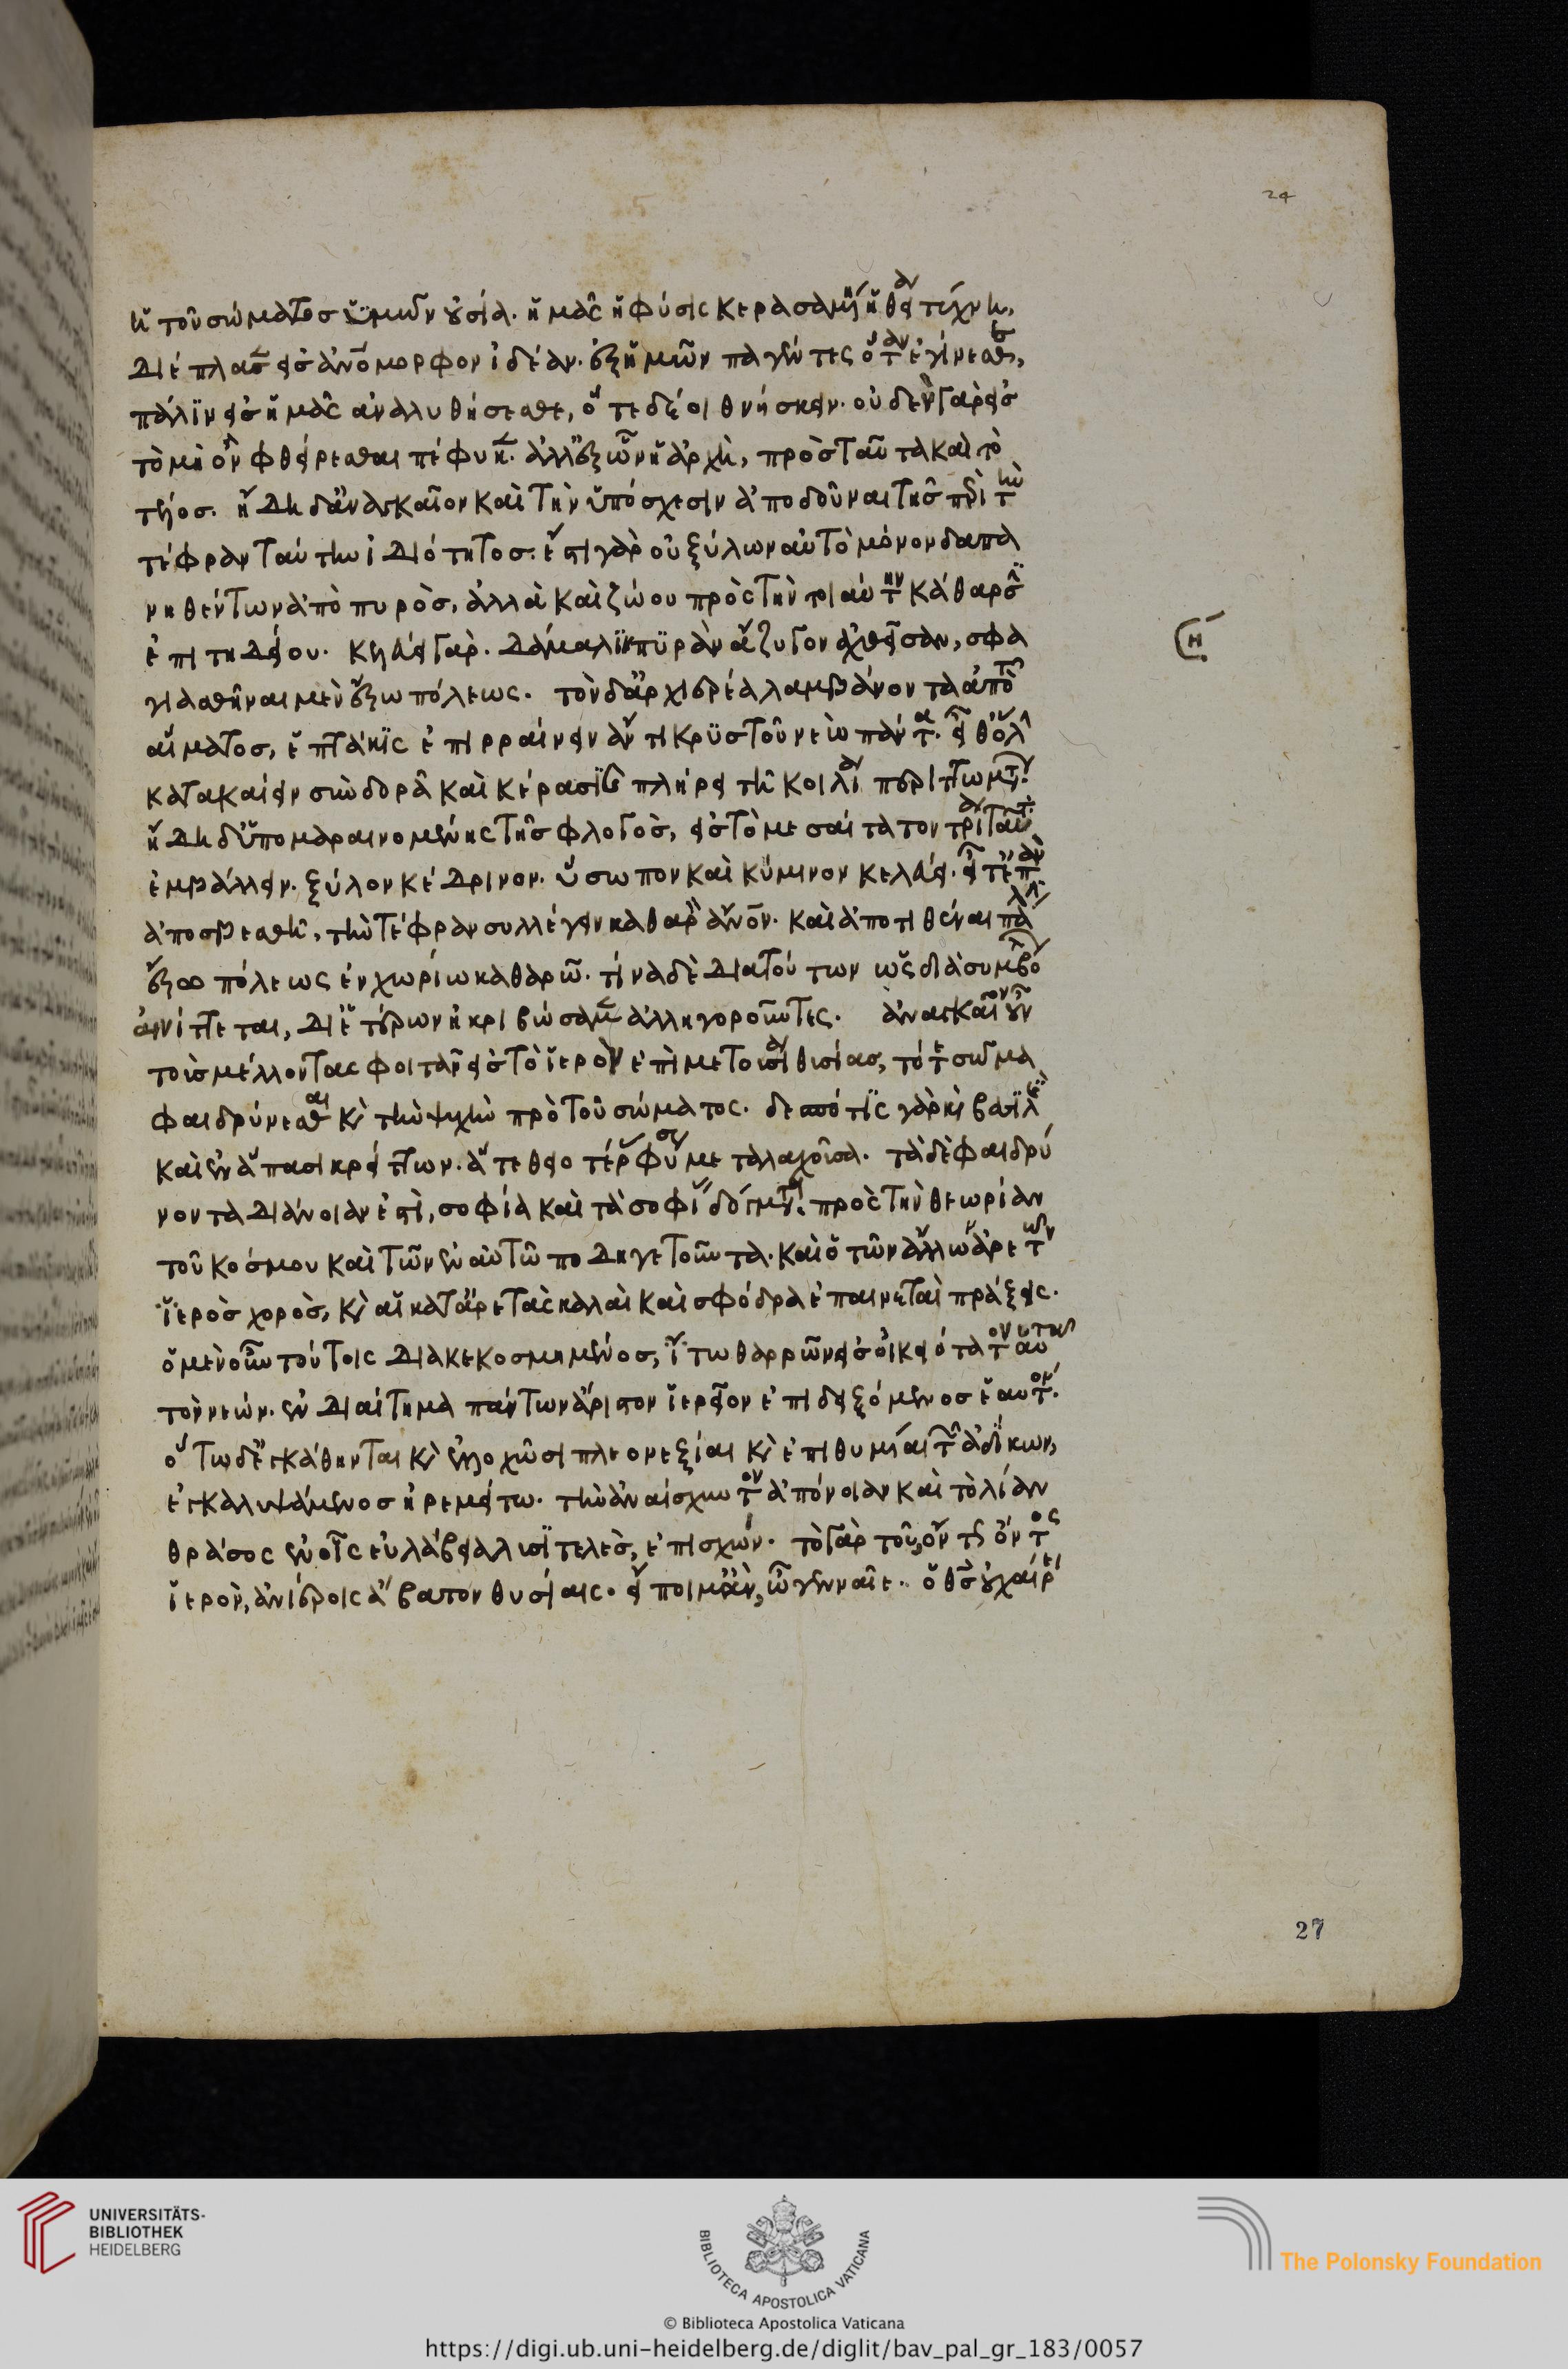 24
ἡ τοῦ σώματος ὑμῶν οὐσία. ἡμᾶς ἡ φύσις κερασαμένη ἡ θεία τέχνη,
διέπλασεν εἰς ἀνθρωπόμορφον ἰδέαν. ἐξ ἡμῶν παγέντες ὅτε ἐγίνεσθε,
πάλιν εἰς ἡμᾶς ἀναλυθήσεσθε, ὅτε δέοι θνήσκειν. οὐδὲν γὰρ εἰς
τὸ μὴ ὂν φθείρεσθαι πέφυκεν. ἀλλ' ἐξ ὧν ἡ ἀρχὴ, πρὸς ταῦτα καὶ τὸ
τέλος. ἤδη δ' ἀναγκαῖον καὶ τὴν ὑπόσχεσιν ἀποδοῦναι τῆς περὶ τὴν
τέφραν ταύτην ἰδιότητος. ἔστι γὰρ οὐ ξύλων αὐτὸ μόνον δαπα
νηθέντων ἀπὸ πυρὸς, ἀλλὰ καὶ ζώου πρὸς τὴν τοιαύτην κάθαρσιν
ἐπιτηδείου. κελεύει γάρ. δάμαλιν πυρὰν ἄζυγον ἀχθεῖσαν, σφα
γιασθῆναι μὲν ἔξω πόλεως. τὸν δ' ἀρχιερέα λαμβάνοντα ἀπὸ τοῦ
αἵματος, ἑπτάκις ἐπιρραίνειν ἀντικρὺς τοῦ νεὼ πάντα. εἶθ' ὅλην
κατακαίειν σὺν δορᾷ καὶ κρέασι πλήρει τῇ κοιλίᾳ περιττωμάτων.
ἤδη δ' ὑπομαραινομένης τῆς φλογὸς, εἰς τὸ μεσαίτατον τρία ταῦτα
ἐμβάλλειν. ξύλον κέδρινον. ὕσωπον καὶ κύμινον κελεύει. εἶτ' ἐπὰν
ἀποσβεσθῇ, τὴν τέφραν συλλέγειν καθαρὸν ἄνθρωπον. καὶ ἀποτιθέναι πάλιν
ἔξω πόλεως ἐν χωρίῳ καθαρῷ. τίνα δὲ διὰ τούτων ὡς διὰ συμβόλων
αἰνίττεται, δι' ἑτέρων ἠκριβώσαμεν ἀλληγοροῦντες. ἀναγκαῖον οὖν
τοὺς μέλλοντας φοιτᾶν εἰς τὸ ἱερὸν ἐπὶ μετουσίαν θυσίας, τό τε σῶμα
φαιδρύνεσθαι καὶ τὴν ψυχὴν πρὸ τοῦ σώματος. δεσπότις γὰρ καὶ βασιλὶς
καὶ ἐν ἅπασι κρείττων. ἅτε θειοτέρας φύσεως μεταλαχοῦσα. τὰ δὲ φαιδρύ
νοντα διάνοιαν ἐστὶ, σοφία καὶ τὰ σοφίας δόγματα. πρὸς τὴν θεωρίαν
τοῦ κόσμου καὶ τῶν ἐν αὐτῷ ποδηγετοῦντα. καὶ ὁ τῶν ἄλλων ἀρετῶν
ἱερὸς χορὸς, καὶ αἱ κατ' ἀρετὰς καλαὶ καὶ σφόδρα ἐπαινεταὶ πράξεις.
ὁ μὲν οὖν τούτοις διακεκοσμημένος, ἴτω θαρρῶν εἰς οἰκειότατον αὐτῷ
τὸν νεών. ἐνδιαίτημα πάντων ἄριστον ἱερεῖον ἐπιδειξόμενος ἑαυτόν.
ὅτῳ δ' ἐγκάθηνται καὶ ἐλλοχῶσι πλεονεξίαι καὶ ἐπιθυμίαι τῶν ἀδίκων,
ἐγκαλυψάμενος ἠρεμείτω. τὴν ἀναίσχυντον ἀπόνοιαν καὶ τὸ λίαν
θράσος ἐν οἷς εὐλάβεια λυσιτελὲς, ἐπισχών. τὸ γὰρ τοῦ ὄντως ὄντος
ἱερὸν, ἀνιέροις ἄβατον θυσίαις. εἴποιμ' ἂν, ὦ γενναῖε. ὁ θεὸς οὐ χαίρει
Η
27
UNIVERSITÄTS-
BIBLIOTHEK
HEIDELBERG
BIBLIOTECA APOSTOLICA VATICANA
The Polonsky Foundation
© Biblioteca Apostolica Vaticana
https://digi.ub.uni-heidelberg.de/diglit/bav_pal_gr_183/0057